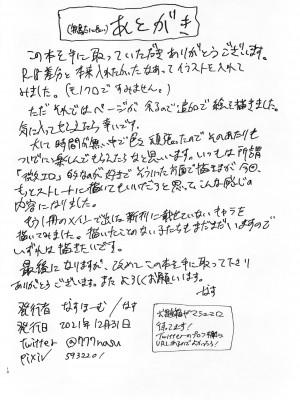 あとがき
この本を手に取っていただきありがとうございます。
R-18差分と本来入れたかったなあってイラストを入れて
みました。(モノクロですみません。)
ただそれではページが余るので追加で絵を描きました。
気に入ってもらえたら幸いです。
大して時間が無い中で色々頑張ったのでそのあたりも
ついでに楽しんでもらえたらなと思います。いつもは所謂
「微エロ」的なのが好きで そういった方面で描きますが今回、
もっとストレートに描いてもいいだろうと思ってこんな感じの
内容になりました。
もう1冊のメインで出た新刊に載せていないキャラを
描いてみました。描いたことのない子たちもまだまだいますので
いずれは描きたいです。
最後になりますが、改めてこの本を手に取って下さり
ありがとうございます。またよろしくお願いします。
なす
発行者 なすほーむ/なす
発行日 2021年12月31日
Twitter @777nasu
pixiv 5932201
やってます!
Twitterのプロフ欄に
URLあるのでよかったら!